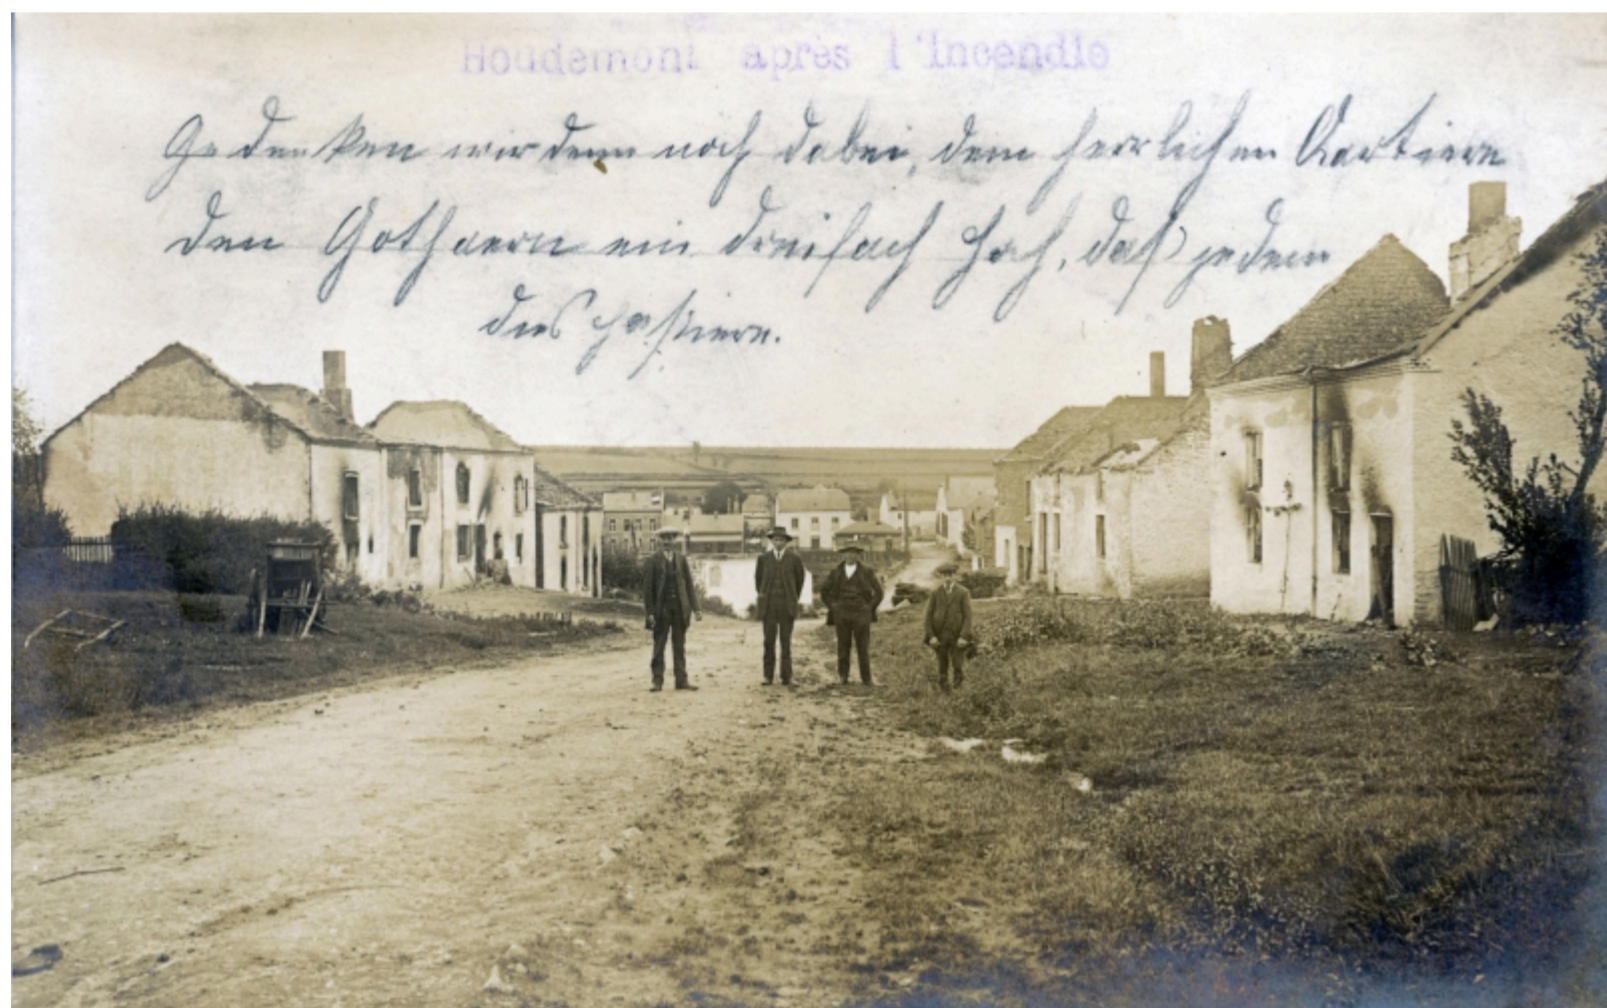 Houdemont après l'Incendie
Gedenken wir denn noch dabei, dem herrlichen Quartiere
den Gothaern ein dreifach Hoch, daß jedem
dies passiere.